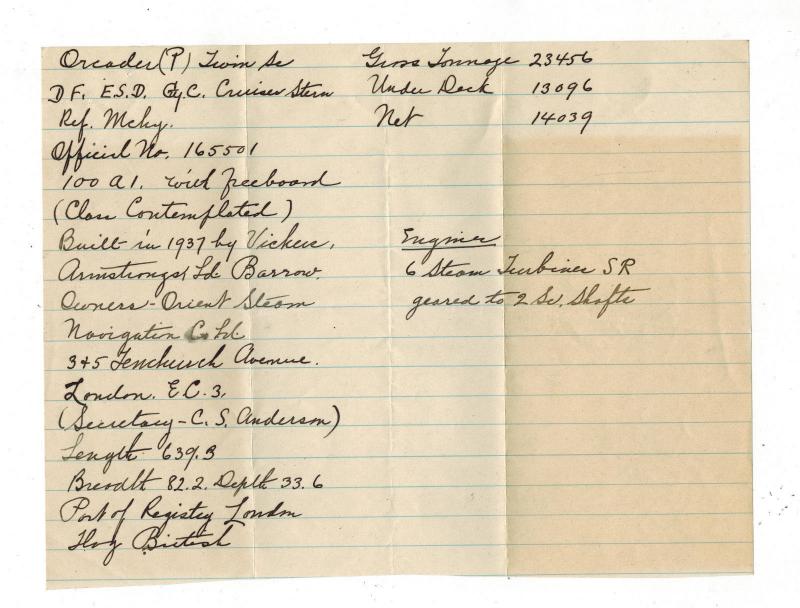 Orcades (P) Twin Sc
DF. E.S.D. Gy.C. Cruiser Stern
Ref. Mchy.
Official No. 165501
100 A1. with freeboard
(Class Contemplated)
Built in 1937 by Vickers,
Armstrongs Ld. Barrow.
Owners - Orient Steam
Navigation Co. Ld.
3+5 Fenchurch Avenue.
London. E.C. 3.
(Secretary - C. S. Anderson)
Length 639.3
Breadth 82.2. Depth 33.6
Port of Registry London
Flag British
Gross Tonnage 23456
Under Deck 13096
Net 14039
Engines
6 Steam Turbines SR
geared to 2 Sc. Shafts